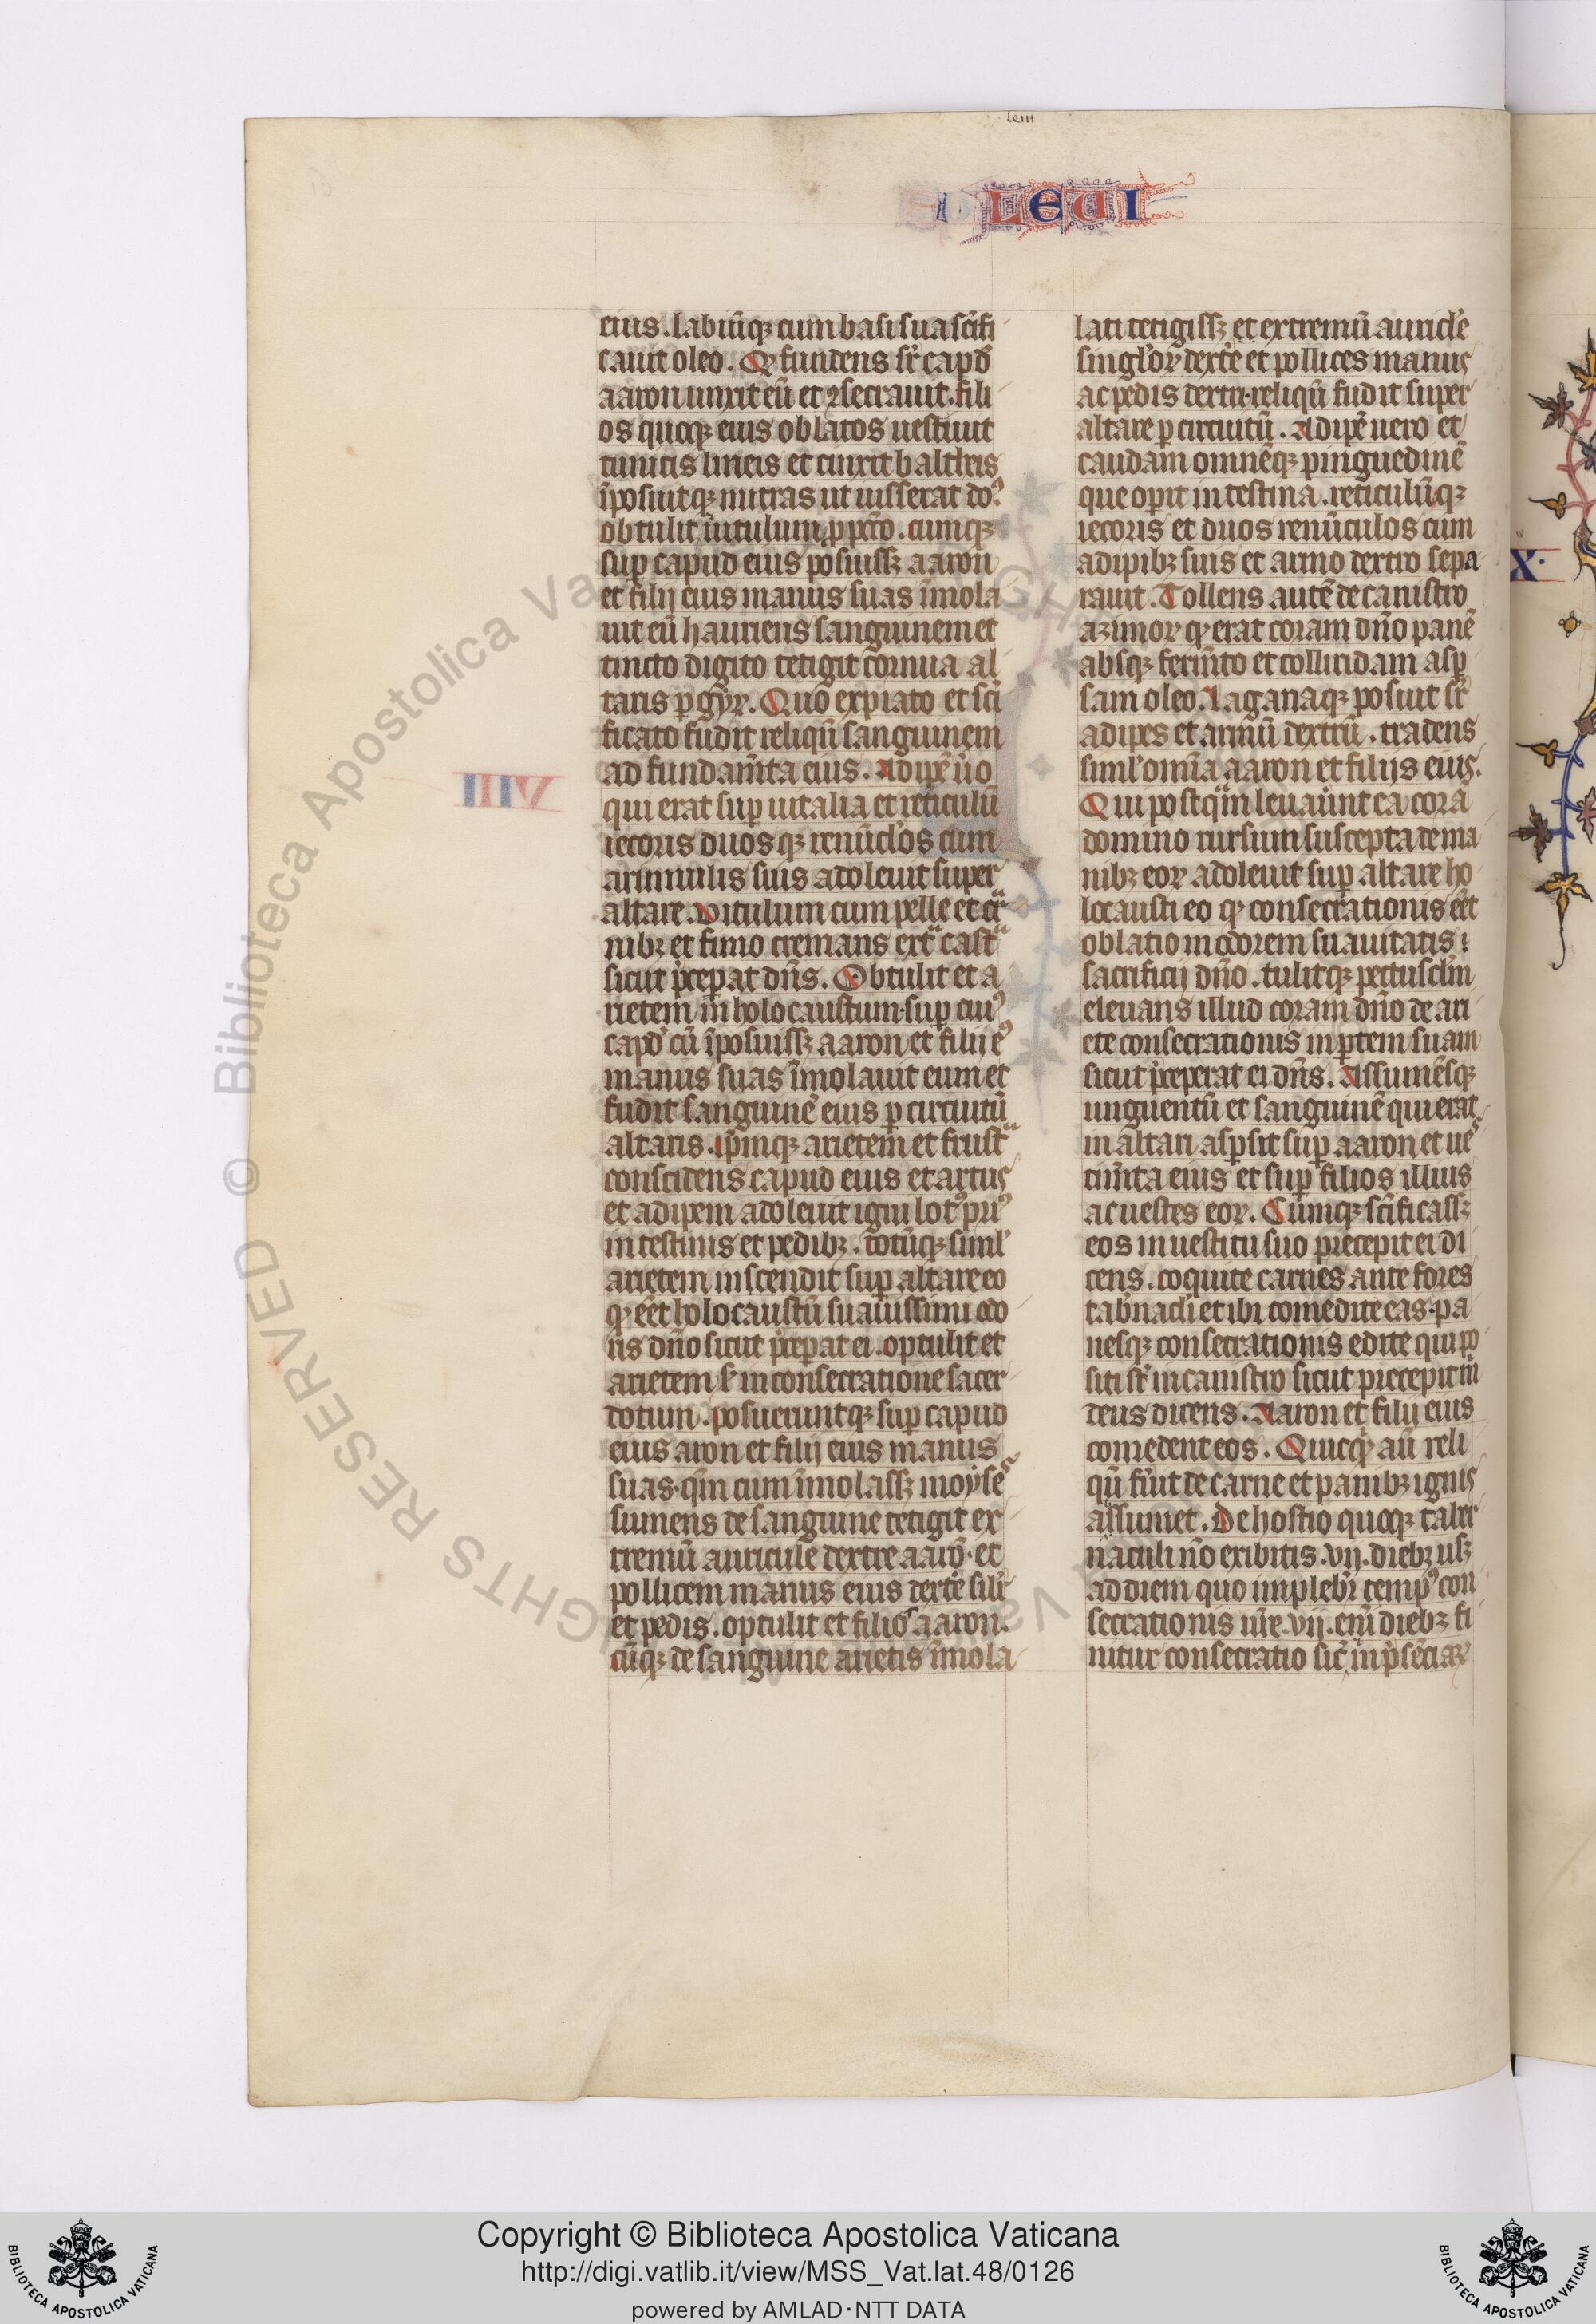 leui
LEUI
eius. labiūqꝫ cum basi sua sc̄ifi
cauit oleo. Qꝫ fundens sr̄ capd̕
aaron unxit eū et ꝯsecrauit. fili
os quoqꝫ eius oblatos uestiuit
tunicis lineis et cinxit baltheis
īposuitqꝫ mitras ut iusserat do᷒.
obtulit uitulum ꝓ pctō. cumqꝫ
suꝑ capud eius posuissꝫ aaron
et filij eius manus suas īmola
uit eū hauriens sanguinem et
tincto digito tetigit cornua al
taris ꝑ gyꝝ. Quo expiato et sc̄i
ficato fudit reliqū sanguinem
ad fundam̄ta eius. Adipē ūo
qui erat suꝑ uitalia et reticulū
iecoris duosqꝫ renūcl̕os cum
aruinulis suis adoleuit super
altare. Uitulum cum pelle et car
nibꝫ et fimo cremans extͣ castͣ
sicut p̄ceꝑat dn̄s. Obtulit et a
rietem in holocaustum. suꝑ cui᷒
capd̕ cū īposuissꝫ aaron et filij e᷒
manus suas īmolauit eum et
fudit sanguinē eius ꝑ circuitū
altaris. ip̄mqꝫ arietem et frustͣ
conscidens capud eius et artus
et adipem adoleuit igni lot᷒ pri᷒
intestinis et pedibꝫ. totūqꝫ siml̕
arietem inscendit suꝑ altare eo
ꝙ eēt holocaustū suauissimi odo
ris dn̄o sicut p̄ceꝑat ei. optulit et
arietem s̄ in consecratione sacer
dotum. posueruntqꝫ suꝑ capud
eius aron et filij eius manus
suas. qm̄ cum īmolassꝫ moyses
sumens de sanguine tetigit ex
tremū auricule dextre aarō. et
pollicem manus eius dext̕e sil̕r
et pedis. optulit et filios aaron.
cūqꝫ de sanguine arietis īmola
lati tetigissꝫ et extremū auricl̕e
singl̕oꝝ dext̕e et pollices manus
ac pedis dextri. reliqū fudit super
altare ꝑ circuitū. Adipē uero et
caudam omnēqꝫ pinguedinē
que oꝑit intestina. reticulūqꝫ
iecoris et duos renūculos cum
adipibꝫ suis et armo dextro sepa
rauit. Tollens autē de canistro
azimoꝝ ꝙ erat coram dn̄o panē
absqꝫ ferm̄to et colliridam asꝑ
sam oleo. Laganaqꝫ posuit sr̄
adipes et armū dextrū. tradens
siml̕ om̄ia aaron et filijs eius.
Qui postqͣm leuaūnt ea corā
domino rursum suscepta de ma
nibꝫ eoꝝ adoleuit suꝑ altare ho
locausti eo ꝙ consecrationis eēt
oblatio in odorem suauitatis i
sacrificij dn̄o. tulitqꝫ pectuscl̕m
eleuans illud coram dn̄o de ari
ete consecrationis in ꝑtem suam
sicut p̄ceperat ei dn̄s. Assumēsqꝫ
unguentū et sanguinē qui erat
in altari asꝑsit suꝑ aaron et ues
tim̄ta eius et suꝑ filios illius
ac uestes eoꝝ. Cumqꝫ sc̄ificassꝫ
eos in uestitu suo precepit ei di
cens. coquite carnes ante fores
tab̄nacl̕i et ibi comedite eas. pa
nesqꝫ consecrationis edite qui po
siti st̄ in canistro sicut precepit m̄
deus dicens. Aaron et filij eius
comedent eos. Quicqͥd aū reli
qū fūit de carne et panibꝫ ignis
assumet. De hostio quoqꝫ taber
naculi nō exibitis. vij. diebꝫ usꝫ
ad diem quo implebr̄ temp᷒ con
secrationis ur̄e. vij. enī diebꝫ fi
nitur consecratio sic̄ in p̄sēciaꝝ
VIII
X.
© Biblioteca Apostolica Vaticana
RIGHTS RESERVED
Copyright © Biblioteca Apostolica Vaticana
http://digi.vatlib.it/view/MSS_Vat.lat.48/0126
powered by AMLAD·NTT DATA
BIBLIOTECA APOSTOLICA VATICANA
BIBLIOTECA APOSTOLICA VATICANA